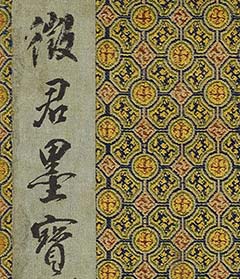 徵君墨寶